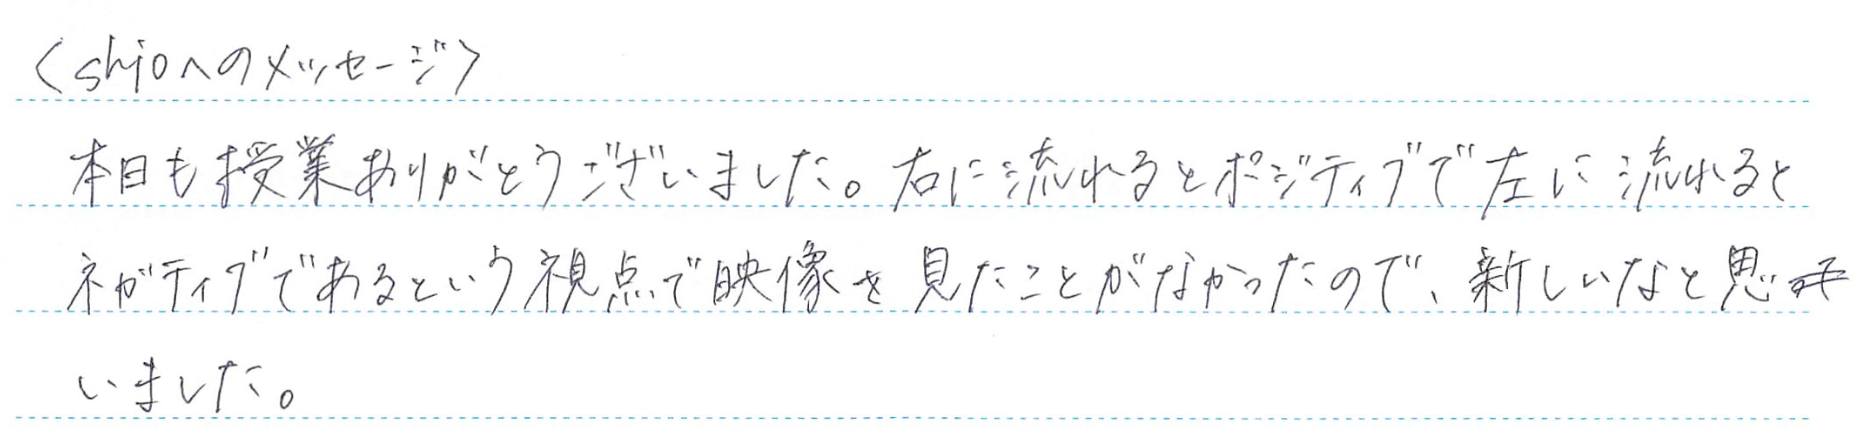 〈shioへのメッセージ〉
本日も授業ありがとうございました。右に流れるとポジティブで左に流れると
ネガティブであるという視点で映像を見たことがなかったので、新しいなと思
いました。